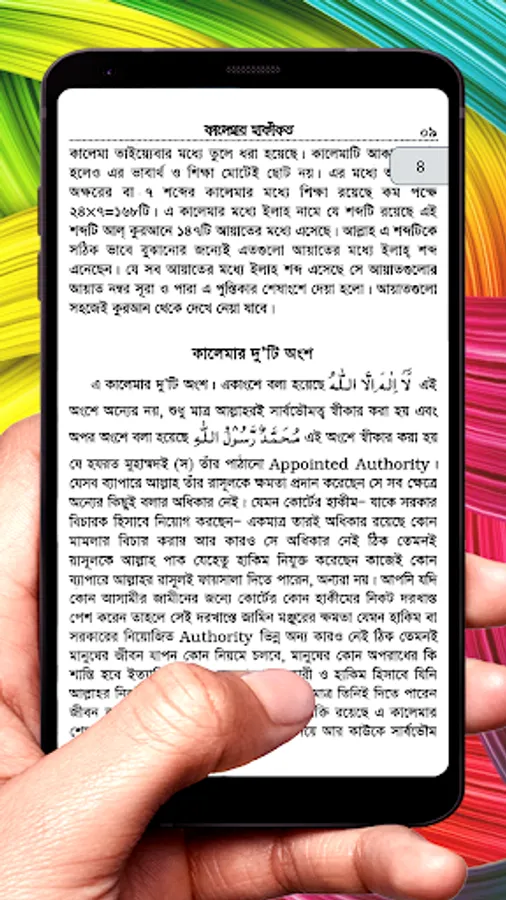 কালেমার হাকীকত ০৯
8
কালেমা তাইয়্যেবার মধ্যে তুলে ধরা হয়েছে। কালেমাটি
হলেও এর ভাবার্থ ও শিক্ষা মোটেই ছোট নয়। এর মধ্যে
অক্ষরের বা ৭ শব্দের কালেমার মধ্যে শিক্ষা রয়েছে কম পক্ষে
২৪×৭=১৬৮টি। এ কালেমার মধ্যে ইলাহ নামে যে শব্দটি রয়েছে এই
শব্দটি আল্ কুরআনে ১৪৭টি আয়াতের মধ্যে এসেছে। আল্লাহ এ শব্দটিকে
সঠিক ভাবে বুঝানোর জন্যেই এতগুলো আয়াতের মধ্যে ইলাহ্ শব্দ
এনেছেন। যে সব আয়াতের মধ্যে ইলাহ শব্দ এসেছে সে আয়াতগুলোর
আয়াত নম্বর সূরা ও পারা এ পুস্তিকার শেষাংশে দেয়া হলো। আয়াতগুলো
সহজেই কুরআন থেকে দেখে নেয়া যাবে।
কালেমার দু'টি অংশ
এ কালেমার দু'টি অংশ। একাংশে বলা হয়েছে لَآ اِلٰهَ اِلَّا اللّٰهُ এই
অংশে অন্যের নয়, শুধু মাত্র আল্লাহরই সার্বভৌমত্ব স্বীকার করা হয় এবং
অপর অংশে বলা হয়েছে مُحَمَّدٌ رَّسُوْلُ اللّٰهِ এই অংশে স্বীকার করা হয়
যে হযরত মুহাম্মদই (স) তাঁর পাঠানো Appointed Authority।
যেসব ব্যাপারে আল্লাহ তাঁর রাসূলকে ক্ষমতা প্রদান করেছেন সে সব ক্ষেত্রে
অন্যের কিছুই বলার অধিকার নেই। যেমন কোর্টের হাকীম– যাকে সরকার
বিচারক হিসাবে নিয়োগ করছেন– একমাত্র তারই অধিকার রয়েছে কোন
মামলার বিচার করার আর কারও সে অধিকার নেই ঠিক তেমনই
রাসূলকে আল্লাহ পাক যেহেতু হাকিম নিযুক্ত করেছেন কাজেই কোন
ব্যাপারে আল্লাহর রাসূলই ফায়সালা দিতে পারেন, অন্যরা নয়। আপনি যদি
কোন আসামীর জামীনের জন্যে কোর্টের কোন হাকীমের নিকট দরখাস্ত
পেশ করেন তাহলে সেই দরখাস্তে জামিন মঞ্জুরের ক্ষমতা যেমন হাকিম বা
সরকারের নিয়োজিত Authority ভিন্ন অন্য কারও নেই ঠিক তেমনই
মানুষের জীবন যাপন কোন নিয়মে চলবে, মানুষের কোন অপরাধের কি
শাস্তি হবে ও হাকিম হিসাবে যিনি
আল্লাহর মাত্র তিনিই দিতে পারেন
জীবন রয়েছে এ কালেমার
আর কাউকে সার্বভৌম